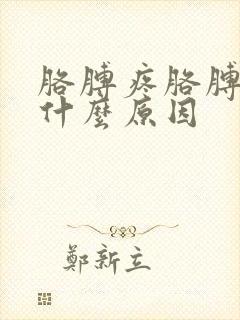 胳膊疼胳膊
什麼原因
鄭新立